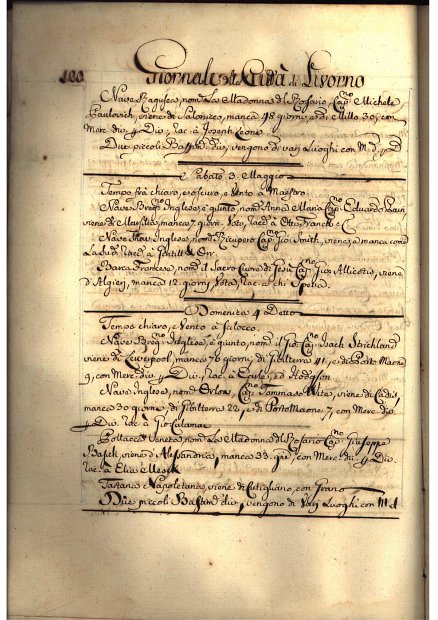 100 Giornale della Città di Livorno
Nave Ragusea, nom.ta La Madonna del Rosario Cap.no Michele
viene di Salonico, manca 48 giorni, e di Millo 30, con
Merc. div. p Div. Rac. a Joseph Leone
Due piccoli Bastim.ti div. vengono di varj Luoghi con Md.
e Sabato 3. Maggio
Tempo frà chiaro, e oscuro, e Vento a
Nave Inglese, è quinto, nom.ta Anna Maria Cap.no Eduardo
viene di Marsilia, manca 7 giorni Voto, Rac. a Otto Franck e C.
Nave Inglese nom. Ricupero Cap. Gio. Smith, viene, e manca come
La di Rac. a
Barca Francese, nom. il Sacro Cuore di Gesù Cap.no Gio.
d'Algeri, manca 12 giorni Vota, Rac. a chi Spetta.
Domenica 4 Detto
Tempo chiaro, e Vento a Scilocco.
Nave Inglese, è quinto, nom. il Gio. Cap.no Jack Strickland
viene di Liverpool, manca 70 giorni, di Gibilterra 41, e di Porto Maone
9, con Merc. div. p Div. Rac. a Earle, ed Hodgson
Nave Inglese, nom. Orlow, Cap.no Tommaso Vita, viene di Cadis,
manca 30 giorni, di Gibilterra 22, e di Porto Maone 7, con Merc. div.
p Div. Rac. a
Pollacca Veneta nom. La Madonna del Rosario Cap. Giuseppe
viene d'Alessandria, manca 38. gni, con Merc. div. p Div.
Rac. a Elia
Tartana Napoletana, viene di con Grano
Due piccoli Bastim.ti div., vengono di Varj Luoghi con Md